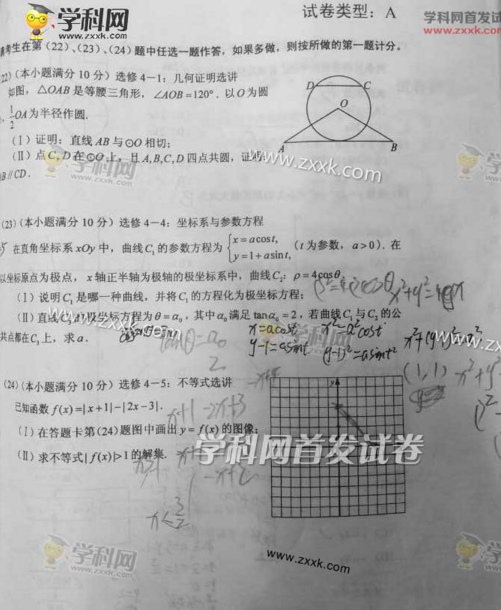 学科网
www.zxxk.com
试卷类型：A
学科网首发试
www.zxxk.com
考生在第（22）、（23）、（24）题中任选一题作答，如果多做，则按所做的第一题计分。
22）（本小题满分 10 分）选修 4－1：几何证明选讲
如图，△OAB 是等腰三角形，∠AOB = 120°．以 O 为圆
1/2 OA 为半径作圆．
（Ⅰ）证明：直线 AB 与⊙O 相切；
（Ⅱ）点 C，D 在⊙O 上，且 A，B，C，D 四点共圆，证
AB∥CD．
D C
O
A B
学科网
www.zxxk.com
www.zxxk.com
（23）（本小题满分 10 分）选修 4－4：坐标系与参数方程
在直角坐标系 xOy 中，曲线 C₁ 的参数方程为 { x = a cos t, y = 1 + a sin t, （t 为参数，a > 0）．在
以坐标原点为极点，x 轴正半轴为极轴的极坐标系中，曲线 C₂：ρ = 4cosθ．
（Ⅰ）说明 C₁ 是哪一种曲线，并将 C₁ 的方程化为极坐标方程；
（Ⅱ）直线 C₃ 的极坐标方程为 θ = α₀，其中 α₀ 满足 tan α₀ = 2，若曲线 C₁ 与 C₂ 的公
共点都在 C₃ 上，求 a．
x=acost
y-1=asint
(1,1)
（24）（本小题满分 10 分）选修 4－5：不等式选讲
已知函数 f(x) = |x + 1| − |2x − 3|．
（Ⅰ）在答题卡第（24）题图中画出 y = f(x) 的图像；
（Ⅱ）求不等式 |f(x)| > 1 的解集．
学科网首发试卷
y
x<3/2
学科网
www.zxxk.com
www.zxxk.com